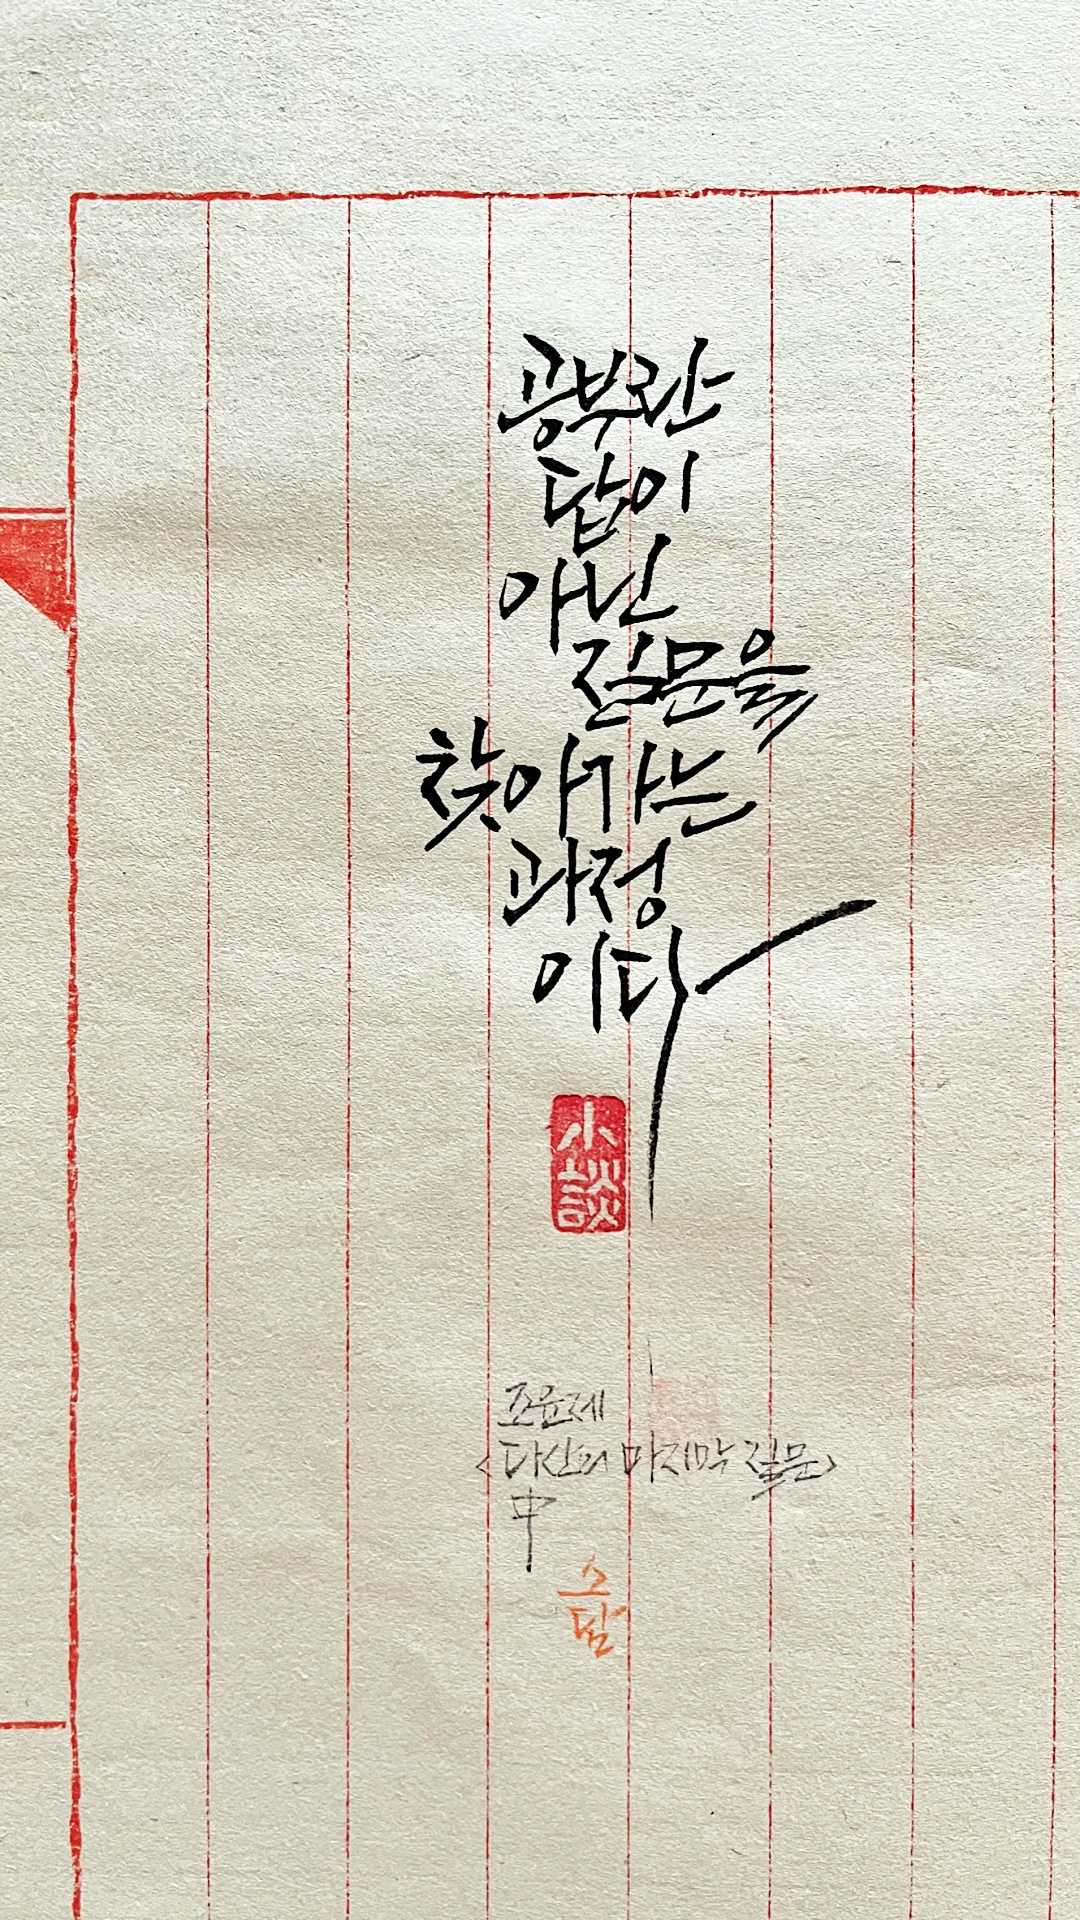 공부란
답이
아닌
질문을
찾아가는
과정
이다
小談
조윤제
<다산의 마지막 질문>
中
소담